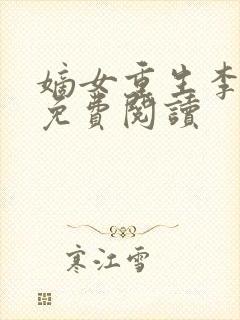 嫡女重生李
免費閱讀
寒江雪